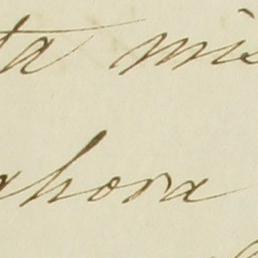 ta mis
ahora